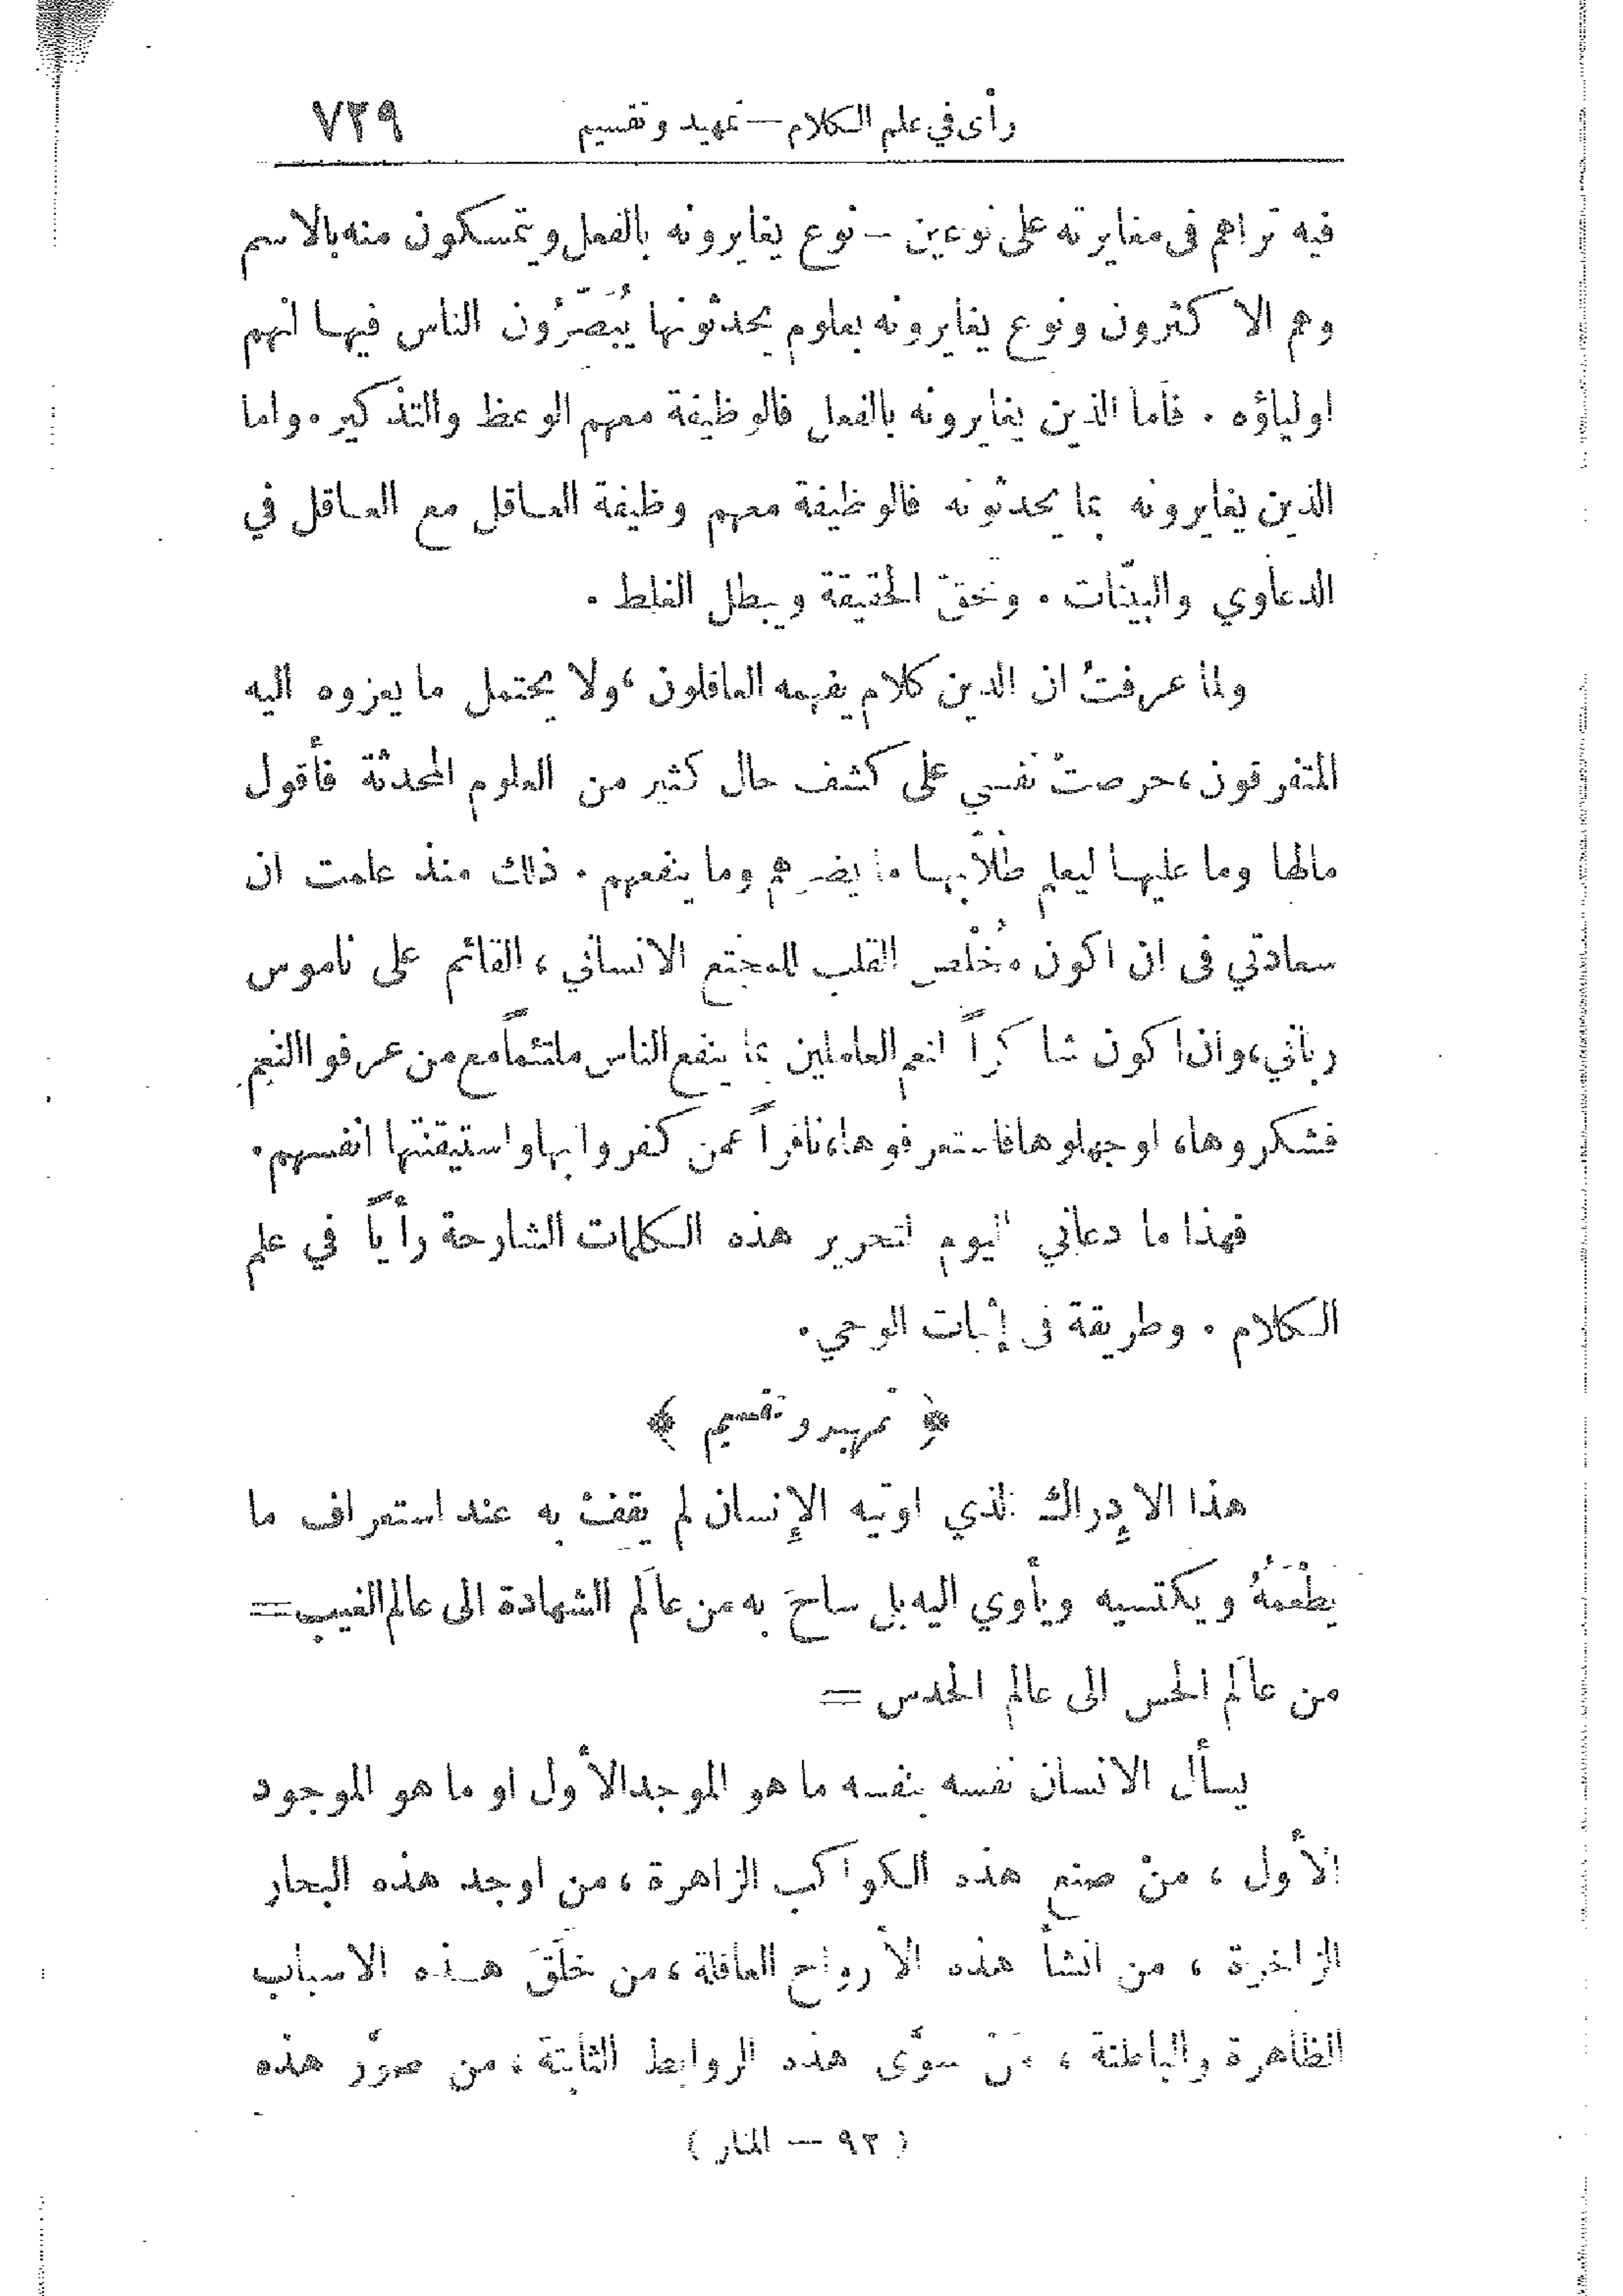 رأى في علم الكلام — تمهيد وتقسيم ٧٢٩
فيه تراهم فى مغايرته على نوعين – نوع يغايرونه بالفعل ويتمسكون منه بالاسم
وهم الاكثرون ونوع يغايرونه بعلوم يحدثونها يُبَصّرُون الناس فيها انهم
اولياؤه . فأما الذين يغايرونه بالفعل فالوظيفة معهم الوعظ والتذكير . واما
الذين يغايرونه بما يحدثونه فالوظيفة معهم وظيفة العاقل مع العاقل في
الدعاوي والبيّنات . وتحقّ الحقيقة ويبطل الغلط .
ولما عرفتُ ان الدين كلام يفهمه العاقلون ، ولا يحتمل ما يعزوه اليه
المتفرقون ، حرصتْ نفسي على كشف حال كثير من العلوم المحدثة فأقول
مالها وما عليها ليعلم طلّابها ما يضرهم وما ينفعهم . ذلك منذ علمت ان
سعادتي فى ان اكون مُخْلص القلب للمجتمع الانساني ، القائم على ناموس
رباني ، وان اكون شاكراً لنعم العاملين بما ينفع الناس ملتئماً مع من عرفوا النعم
فشكروها ، او جهلوها فاستعرفوها ، نافراً عمن كفروا بها واستيقنتها انفسهم .
فهذا ما دعاني اليوم لتحرير هذه الكلمات الشارحة رأياً في علم
الكلام . وطريقة فى إثبات الوحي .
﴿ تمهيد وتقسيم ﴾
هذا الاِدراك الذي اوتيه الإنسان لم يقفْ به عند استعراف ما
يطْعَمُهُ ويكتسيه ويأوي اليه بل ساحَ به من عالَم الشهادة الى عالم الغيب =
من عالَم الحس الى عالم الحدس =
يسأل الانسان نفسه بنفسه ما هو الموجد الأول او ما هو الموجود
الأول ، منْ صنع هذه الكواكب الزاهرة ، من اوجد هذه البحار
الزاخرة ، من انشأ هذه الأرواح العاقلة ، من خلَقَ هذه الاسباب
الظاهرة والباطنة ، مَنْ سوَّى هذه الروابط الثابتة ، من صوَّر هذه
( ٩٢ — المنار )